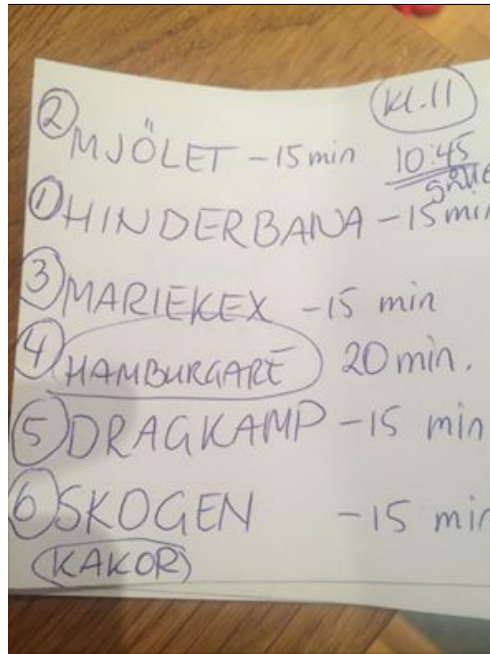 kl.11
② MJÖLET - 15 min 10:45
① HINDERBANA - 15 min
③ MARIEKEX - 15 min
④ HAMBURGARE 20 min.
⑤ DRAGKAMP - 15 min
⑥ SKOGEN - 15 min
KAKOR